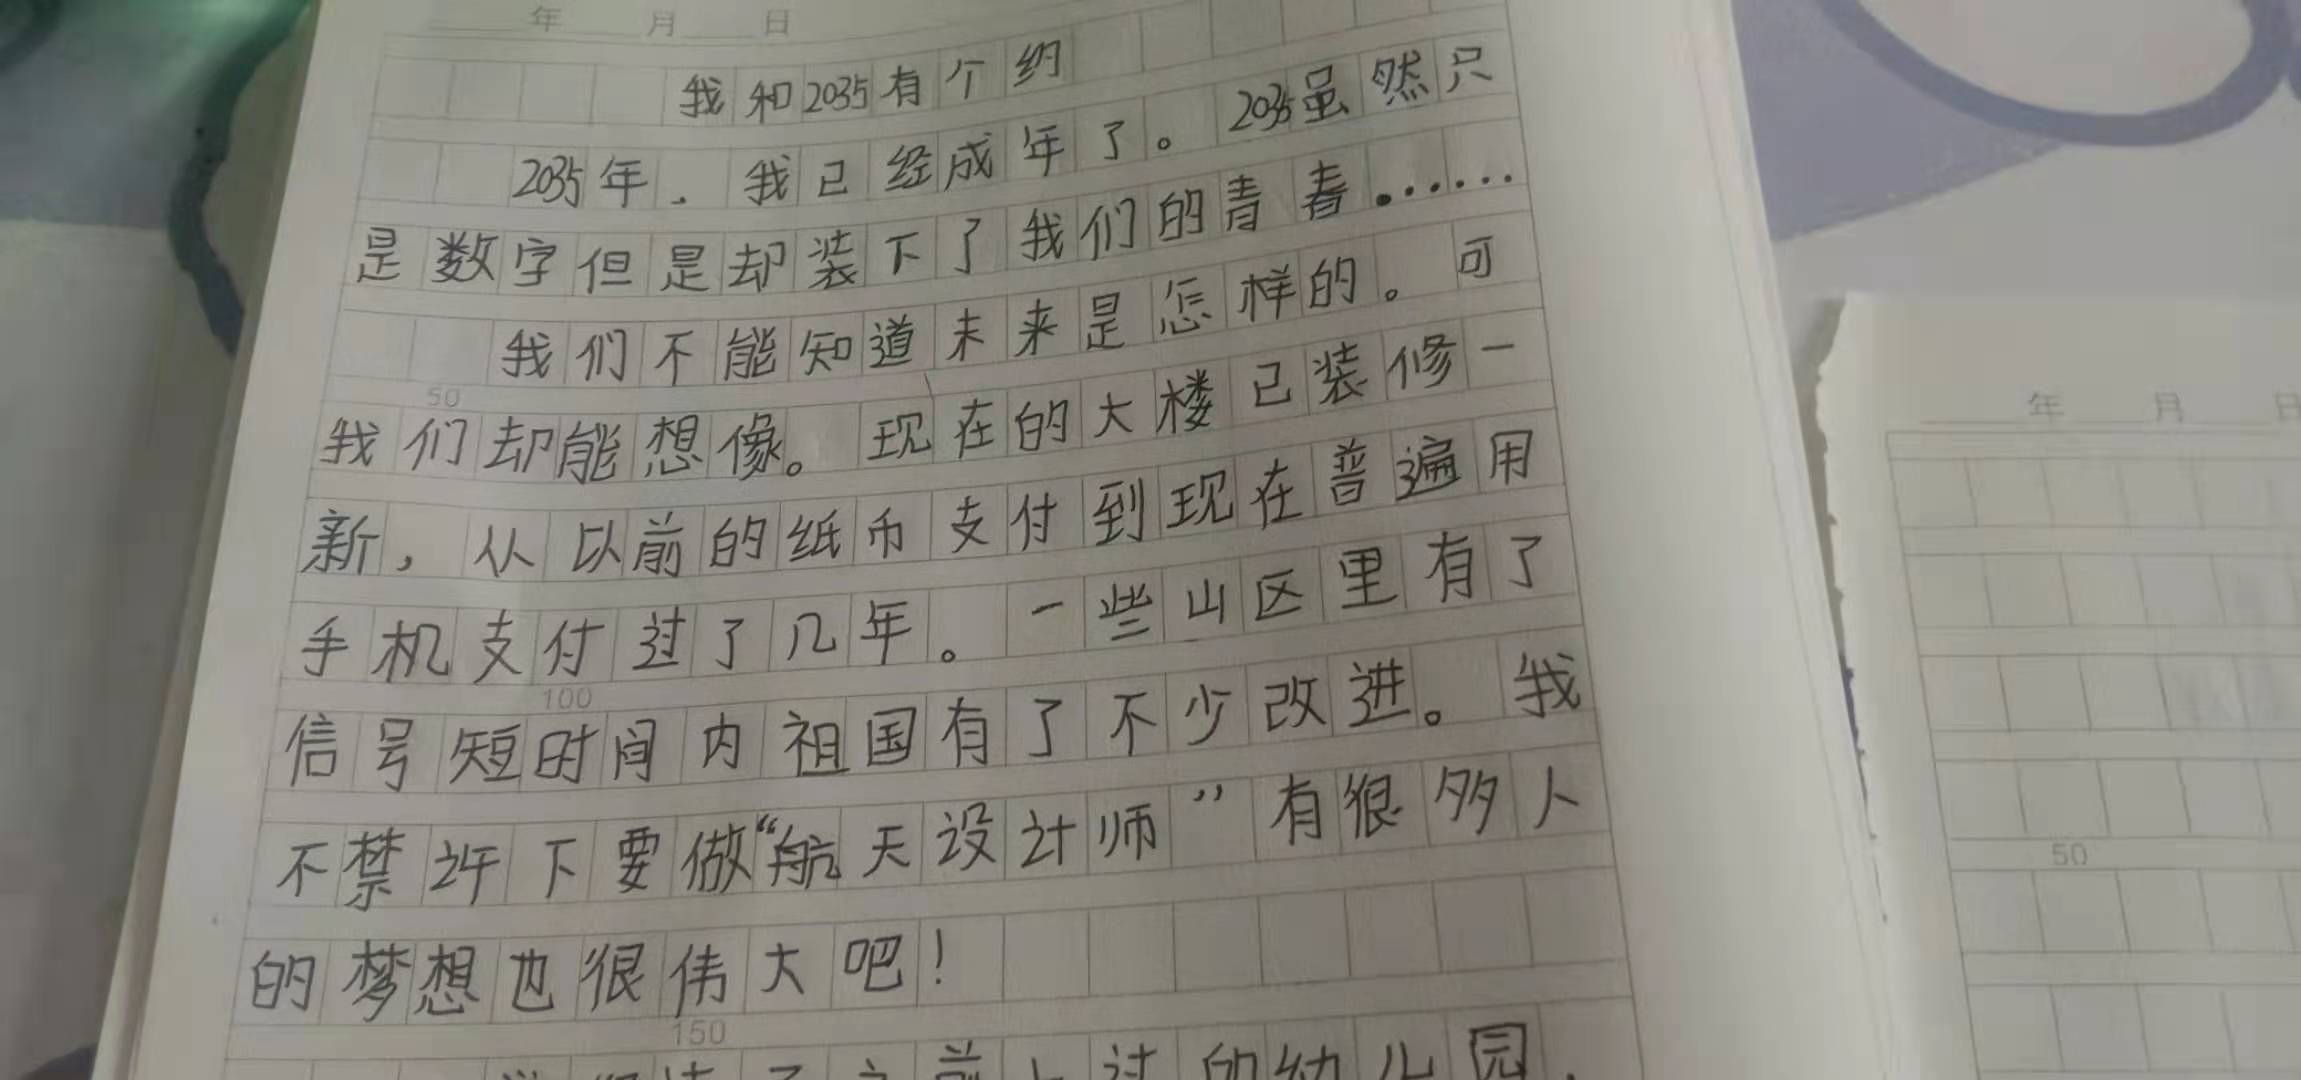 年 月 日
我和2035有个约
2035年，我已经成年了。2035虽然只
是数字但是却装下了我们的青春……
我们不能知道未来是怎样的。可
50
我们却能想像。现在的大楼已装修一
新，从以前的纸币支付到现在普遍用
手机支付过了几年。一些山区里有了
100
信号短时间内祖国有了不少改进。我
不禁许下要做“航天设计师”有很多人
的梦想也很伟大吧！
150
前上过的幼儿园，
年 月 日
50